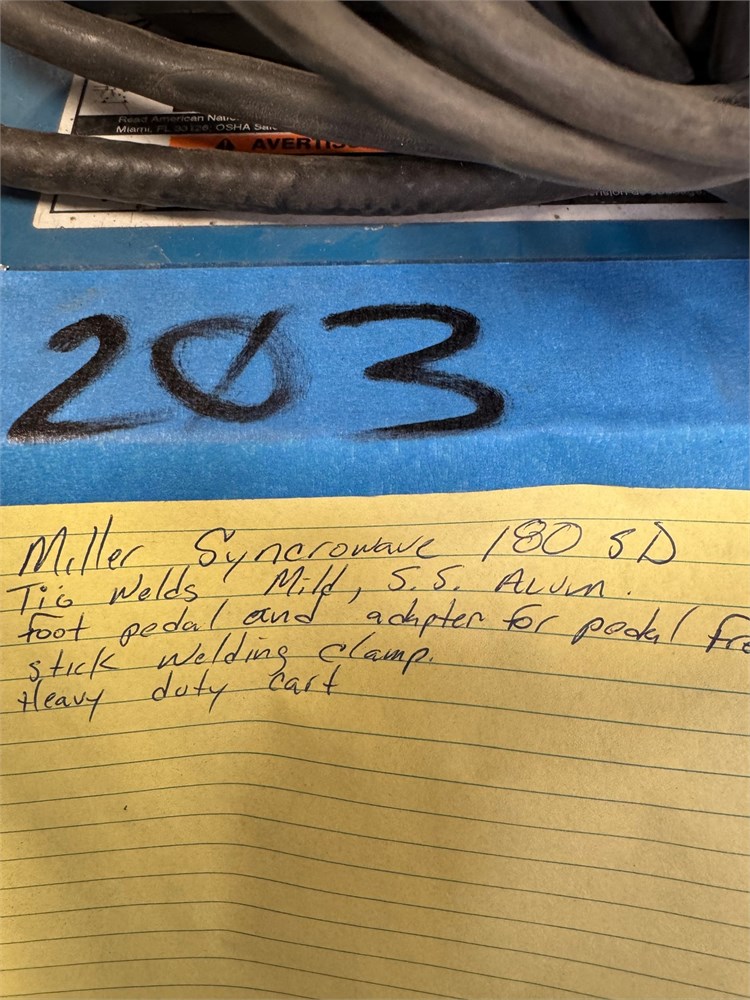 Read American Nati
Miami, FL 33126; OSHA Saf
AVERTIS
203
Miller Syncrowave 180 SD
Tig Welds Mild, S.S. Alum.
foot pedal and adapter for pedal fre
stick welding clamp.
Heavy duty cart